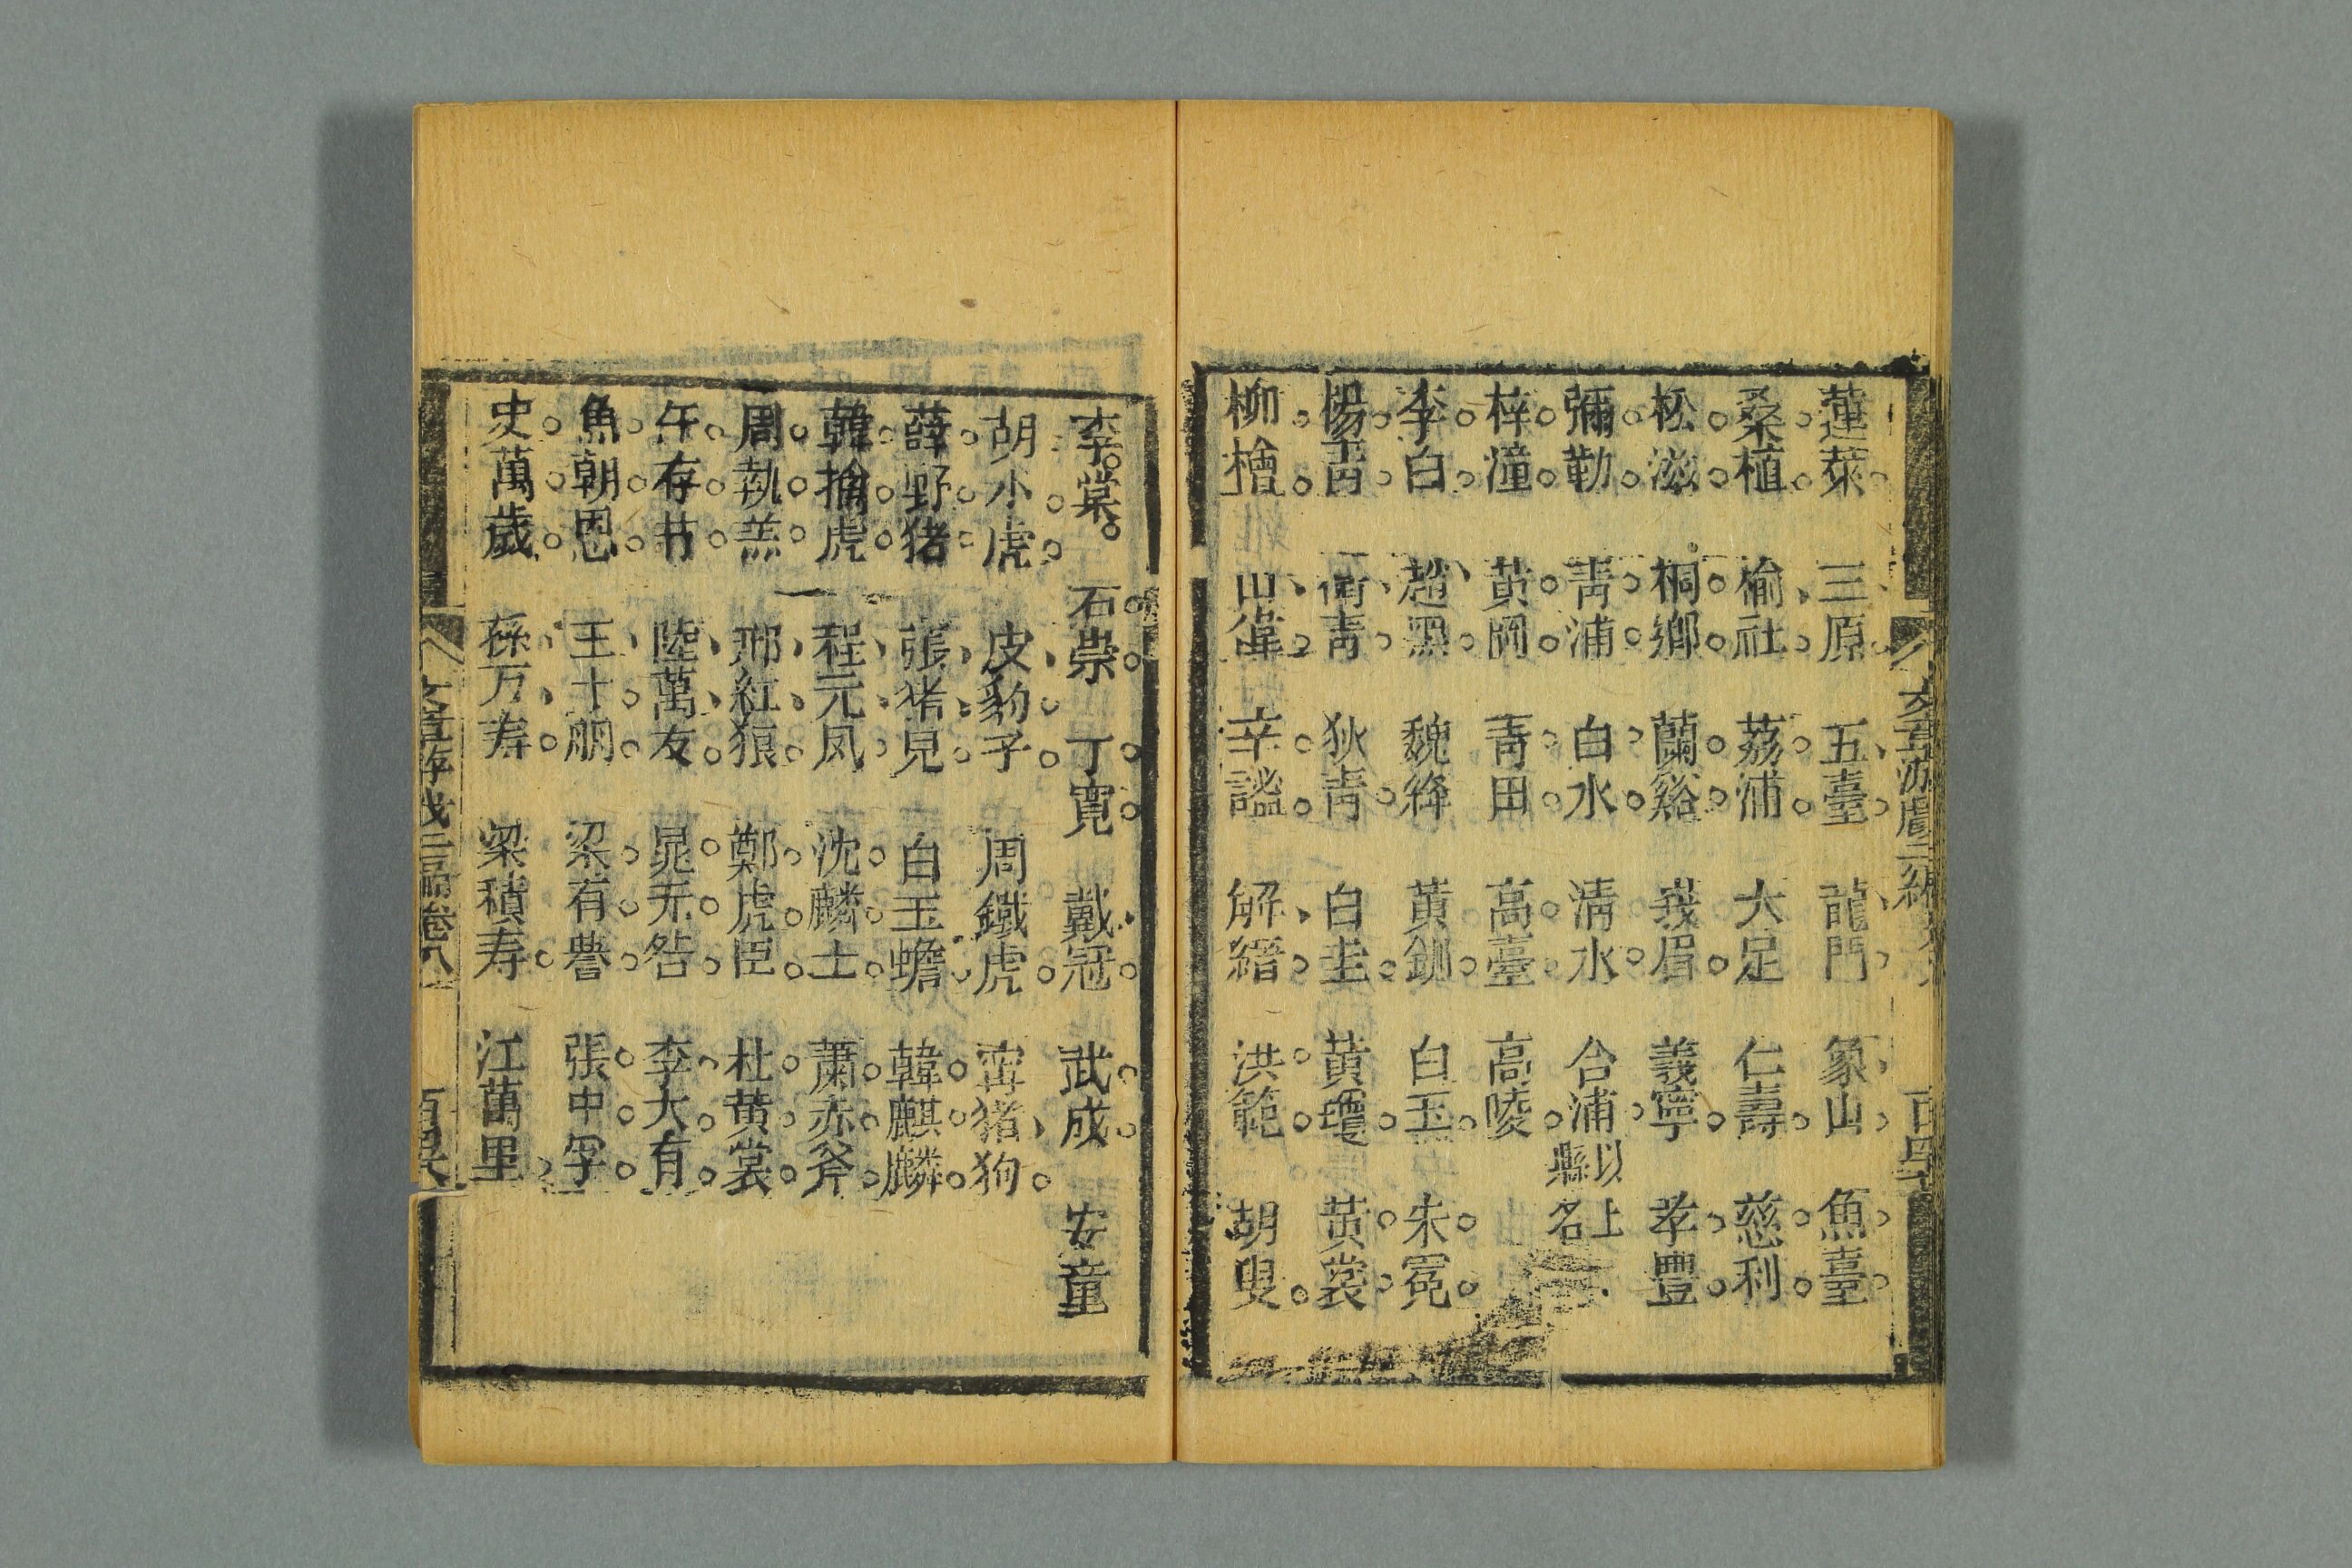 蓬萊 三原 五臺 龍門 象山 魚臺
桑植 榆社 荔浦 大足 仁壽 慈利
松滋 桐鄉 蘭谿 峩眉 義寧 孝豐
彌勒 青浦 白水 清水 合浦 以上縣名
梓潼 黃岡 青田 高臺 高陵
李白 趙黑 魏絳 黃釧 白玉 朱冕
楊青 衛青 狄青 白圭 黃瓊 黃裳
柳檜 山偉 辛謐 解縉 洪範 胡叟
李棠 石崇 丁寬 戴冠 武成 安童
胡小虎 皮豹子 周鐵虎 甯猪狗
薛野猪 張猪兒 白玉蟾 韓麒麟
韓擒虎 程元凤 沈麟士 蕭赤斧
周執羔 邢紅狼 鄭虎臣 杜黃裳
午存 陸萬友 晁无咎 李大有
魚朝恩 王十朋 梁有譽 張中孚
史萬歲 孫万寿 梁積寿 江萬里